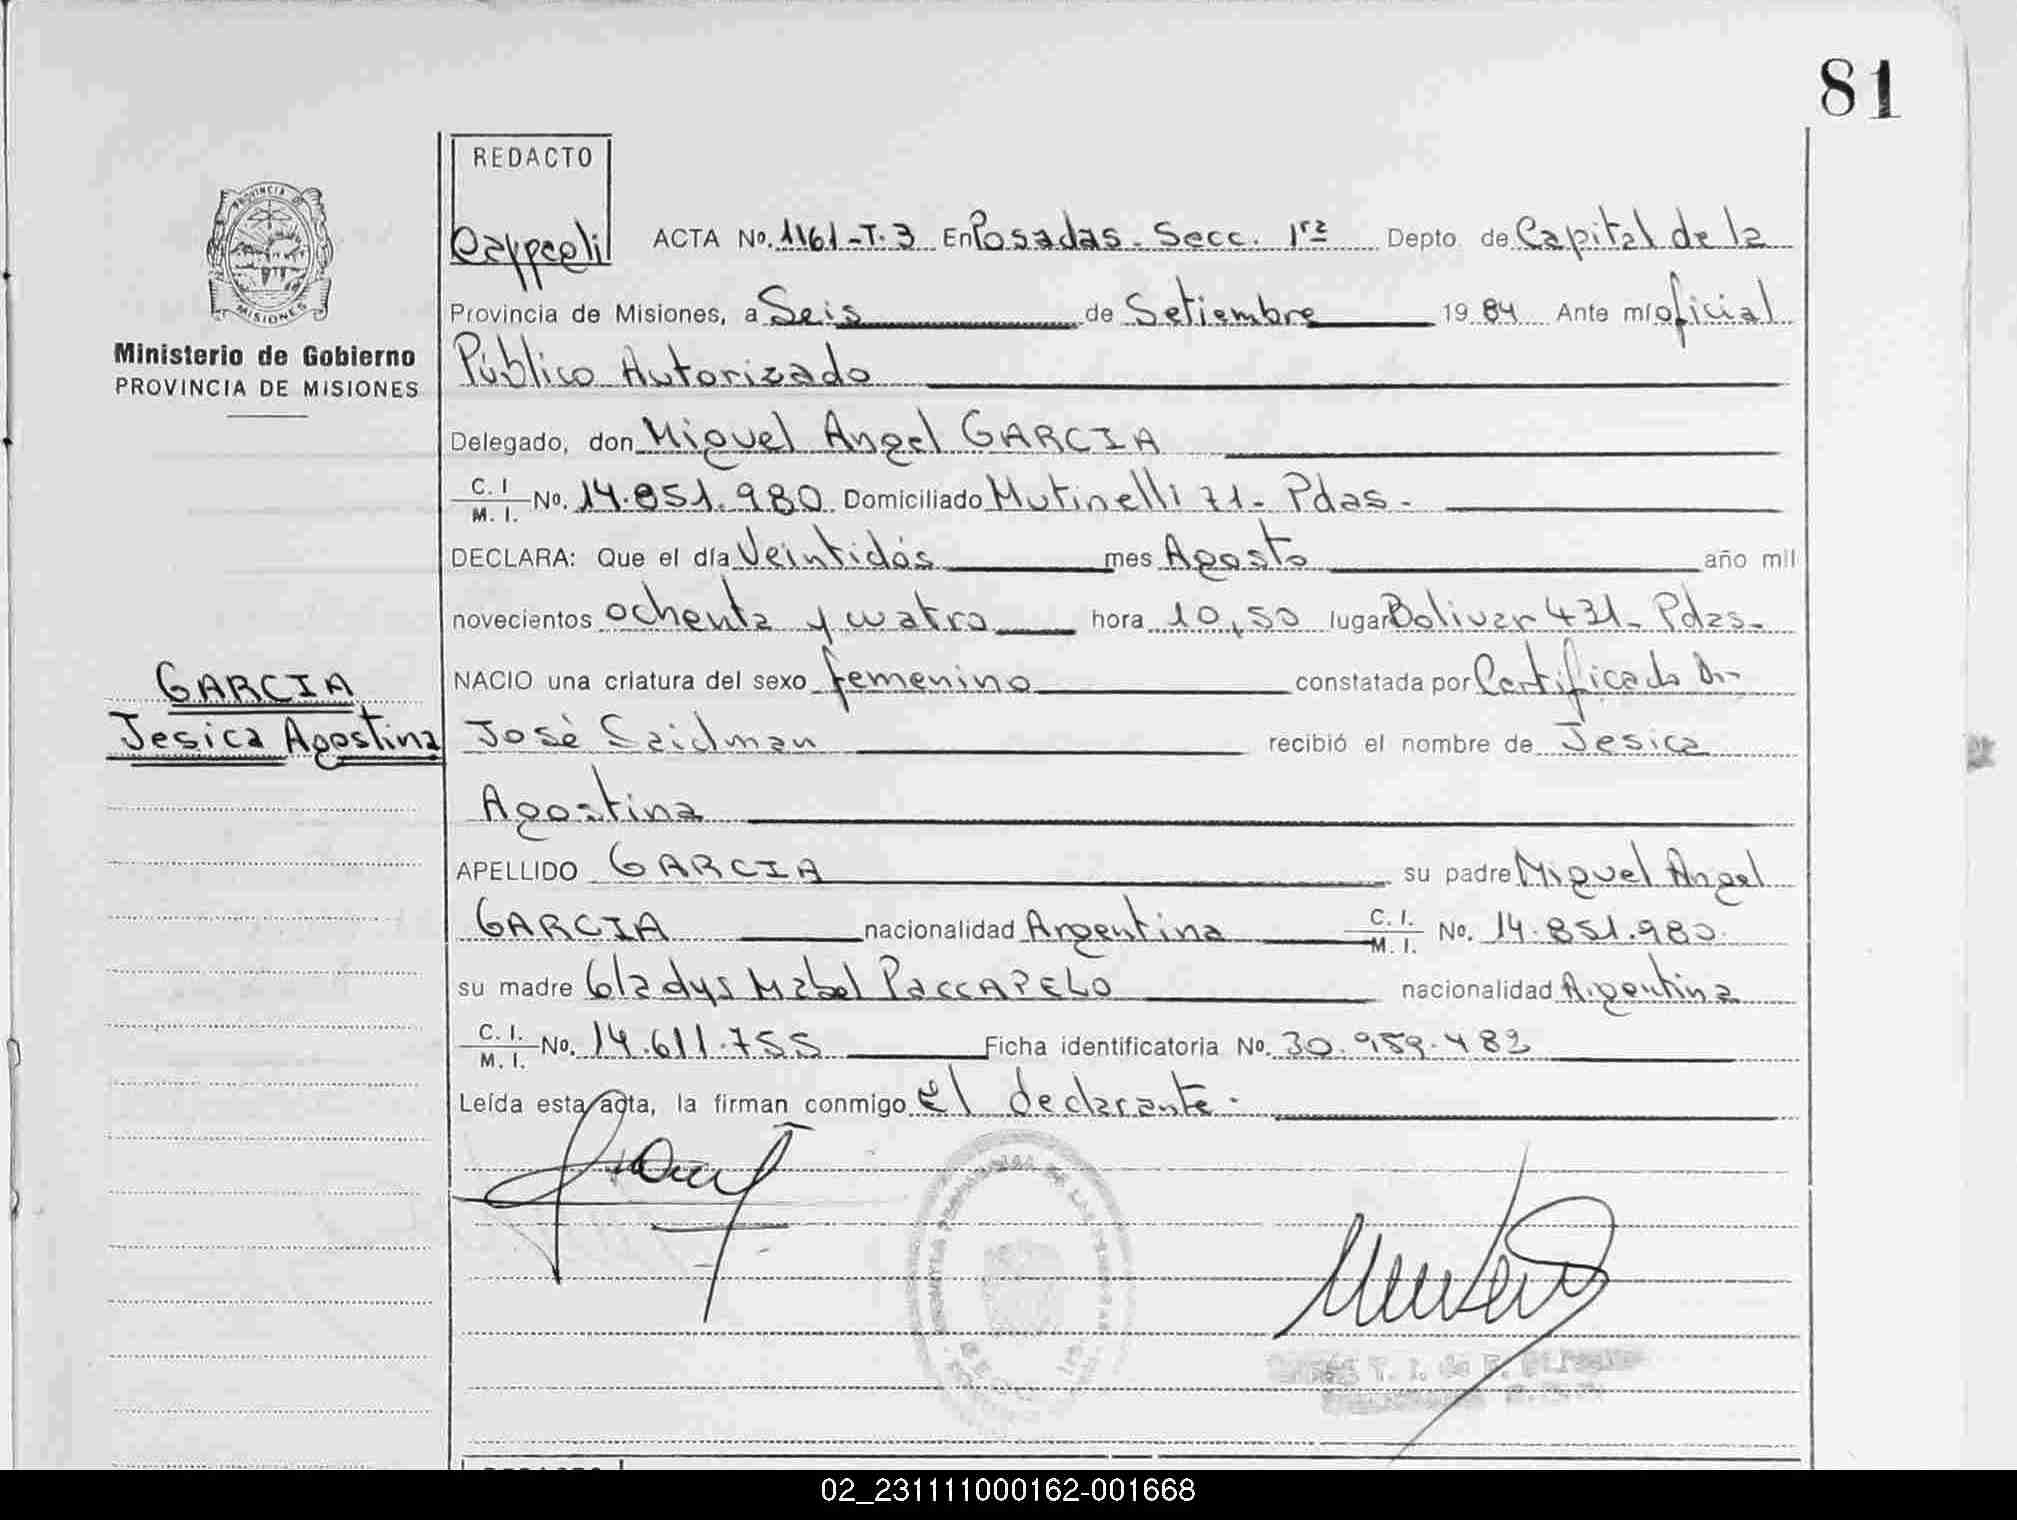 81
REDACTO
ACTA No. 1161-T.3 En Posadas. Secc. 1ra Depto. de Capital de la
Provincia de Misiones, a Seis de Setiembre 19 84 Ante mí oficial
Público Autorizado
Delegado, don Miguel Angel GARCIA
C. I. M. I. No. 14.851.980 Domiciliado Mutinelli 71- Pdas-
DECLARA: Que el día Veintidós mes Agosto año mil
novecientos ochenta y cuatro hora 10,50 lugar Bolivar 431- Pdas-
NACIO una criatura del sexo femenino constatada por Certificado Dr
José Saidman recibió el nombre de Jesica
Agostina
APELLIDO GARCIA su padre Miguel Angel
GARCIA nacionalidad Argentina C. I. M. I. No. 14.851.980
su madre Gladys Mabel PACCAPELO nacionalidad Argentina
C. I. M. I. No. 14.611.755 Ficha identificatoria No. 30.959.483
Leída esta acta, la firman conmigo el declarante.
PROVINCIA DE
MISIONES
Ministerio de Gobierno
PROVINCIA DE MISIONES
GARCIA
Jesica Agostina
02_231111000162-001668